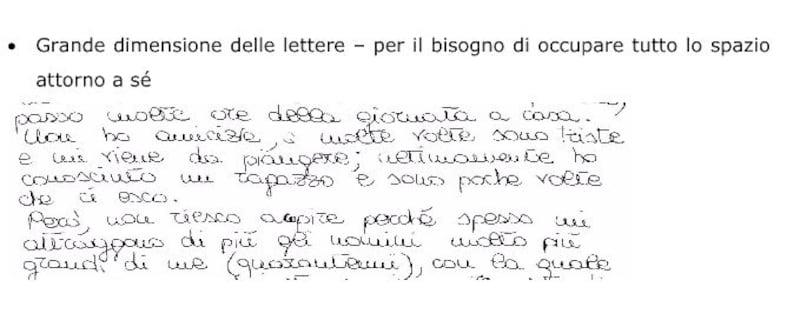 • Grande dimensione delle lettere – per il bisogno di occupare tutto lo spazio
attorno a sé
passo molte ore della giornata a casa.
Non ho amicizie, molte volte sono triste
e mi viene da piangere; ultimamente ho
conosciuto un ragazzo e sono poche volte
che ci esco.
Però, non riesco a capire perché spesso mi
attraggono di più gli uomini molto più
grandi di me (quarantenni), con la quale